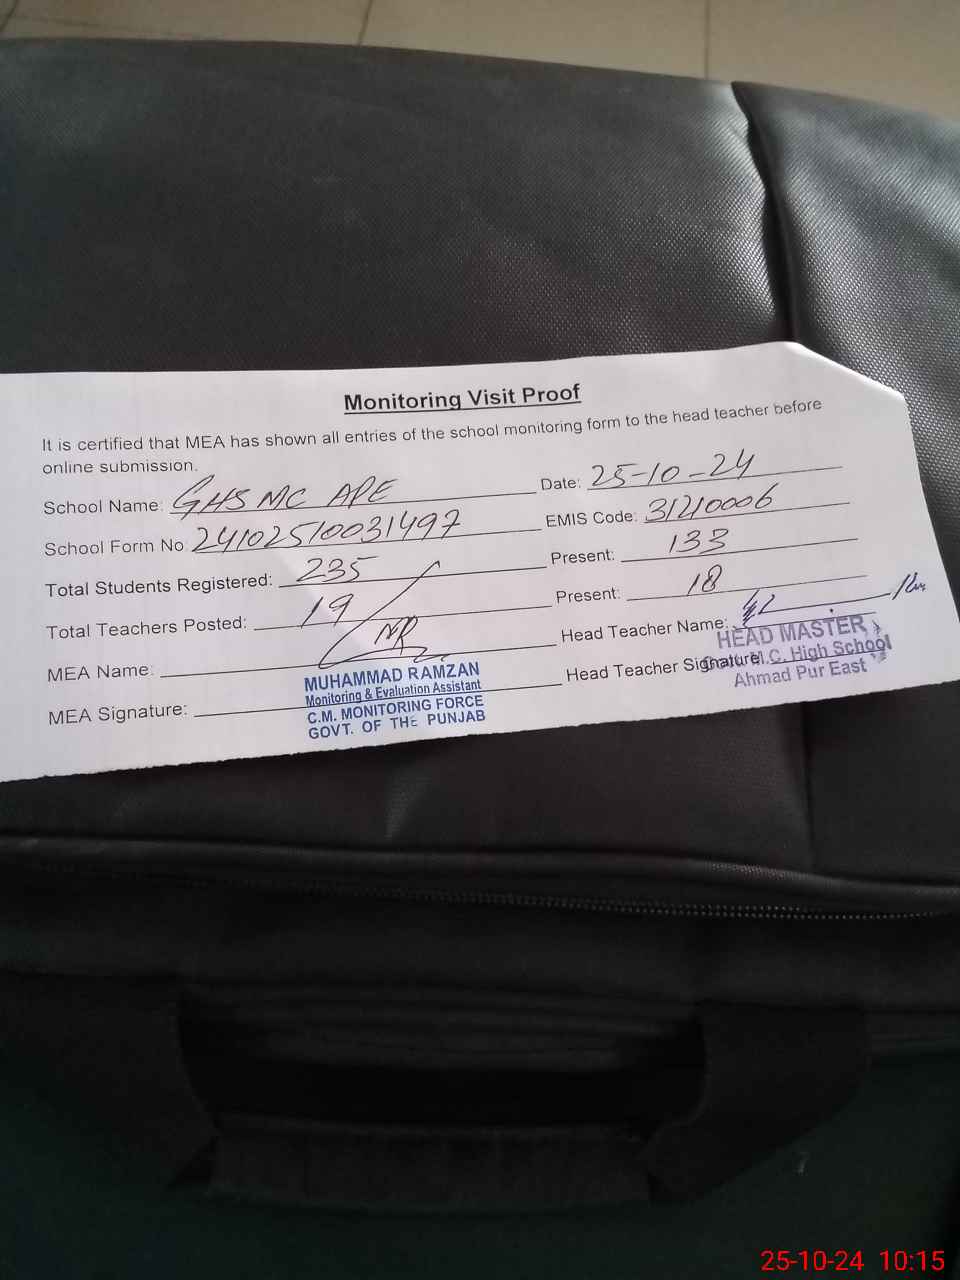 Monitoring Visit Proof
It is certified that MEA has shown all entries of the school monitoring form to the head teacher before
online submission.
School Name: GHS MC APE Date: 25-10-24
School Form No. 24102510031497 EMIS Code: 31210006
Total Students Registered: 235 Present: 133
Total Teachers Posted: 19 Present: 18
MEA Name: Head Teacher Name:
MEA Signature: Head Teacher Signature:
MUHAMMAD RAMZAN
Monitoring & Evaluation Assistant
C.M. MONITORING FORCE
GOVT. OF THE PUNJAB
HEAD MASTER
M.C. High School
Ahmad Pur East
25-10-24 10:15